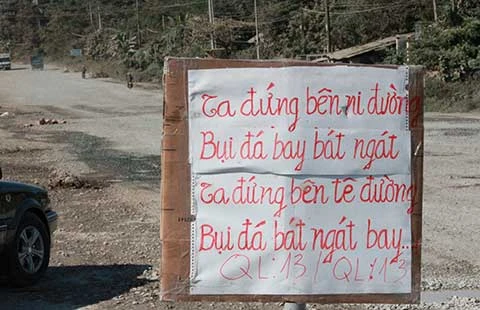 Ta đứng bên ni đường
Bụi đá bay bát ngát
Ta đứng bên tê đường
Bụi đá bát ngát bay..
QL:13 / QL:13